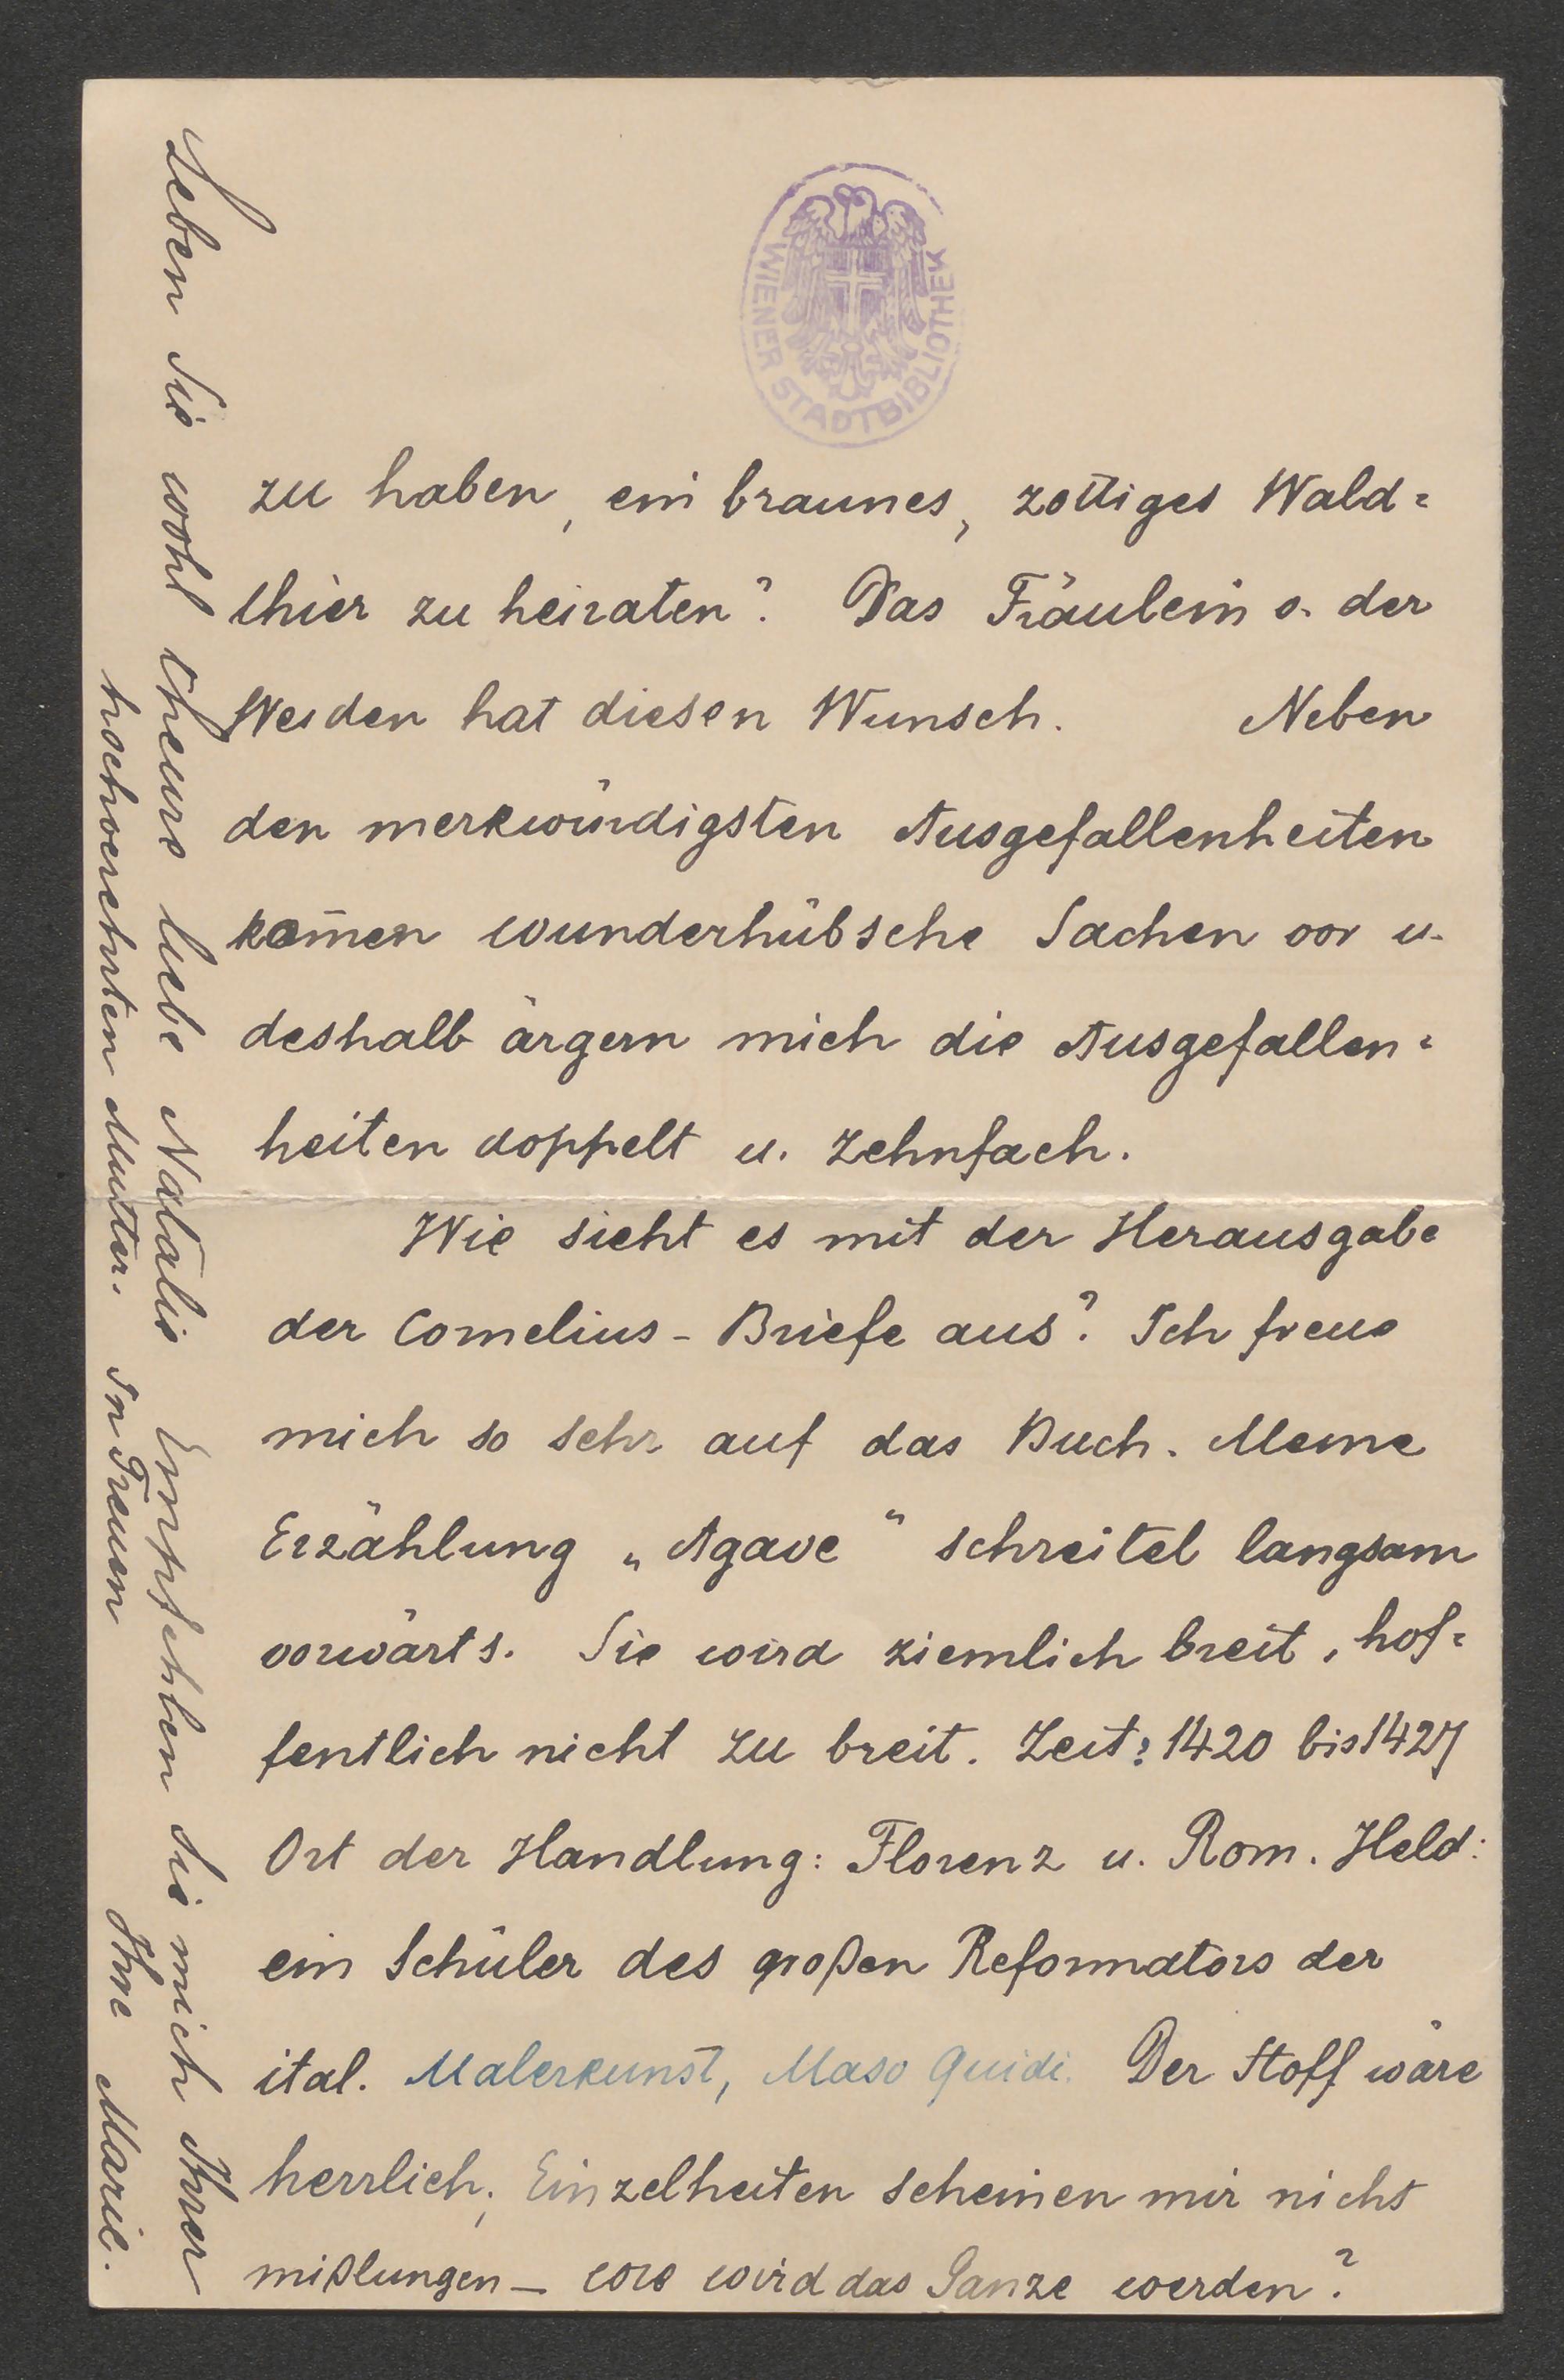 WIENER STADTBIBLIOTHEK
zu haben, ein braunes, zottiges Wald=
thier zu heiraten? Das Fräulein v. der
Weiden hat diesen Wunsch. Neben
den merkwürdigsten Ausgefallenheiten
kom̅en wunderhübsche Sachen vor u.
deshalb ärgern mich die Ausgefallen=
heiten doppelt u. zehnfach.
Wie sieht es mit der Herausgabe
der Cornelius - Briefe aus? Ich freue
mich so sehr auf das Buch. Meine
Erzählung „Agave“ schreitet langsam
vorwärts. Sie wird ziemlich breit, hof=
fentlich nicht zu breit. Zeit: 1420 bis 1427
Ort der Handlung: Florenz u. Rom. Held:
ein Schüler des großen Reformators der
ital. Malerkunst, Maso Guidi. Der Stoff wäre
herrlich; Einzelheiten scheinen mir nicht
mißlungen – wie wird das Ganze werden?
Leben Sie wohl theure liebe Natalie Empfehlen Sie mich Ihrer
hochverehrten Mutter. In Treuen Ihre Marie.